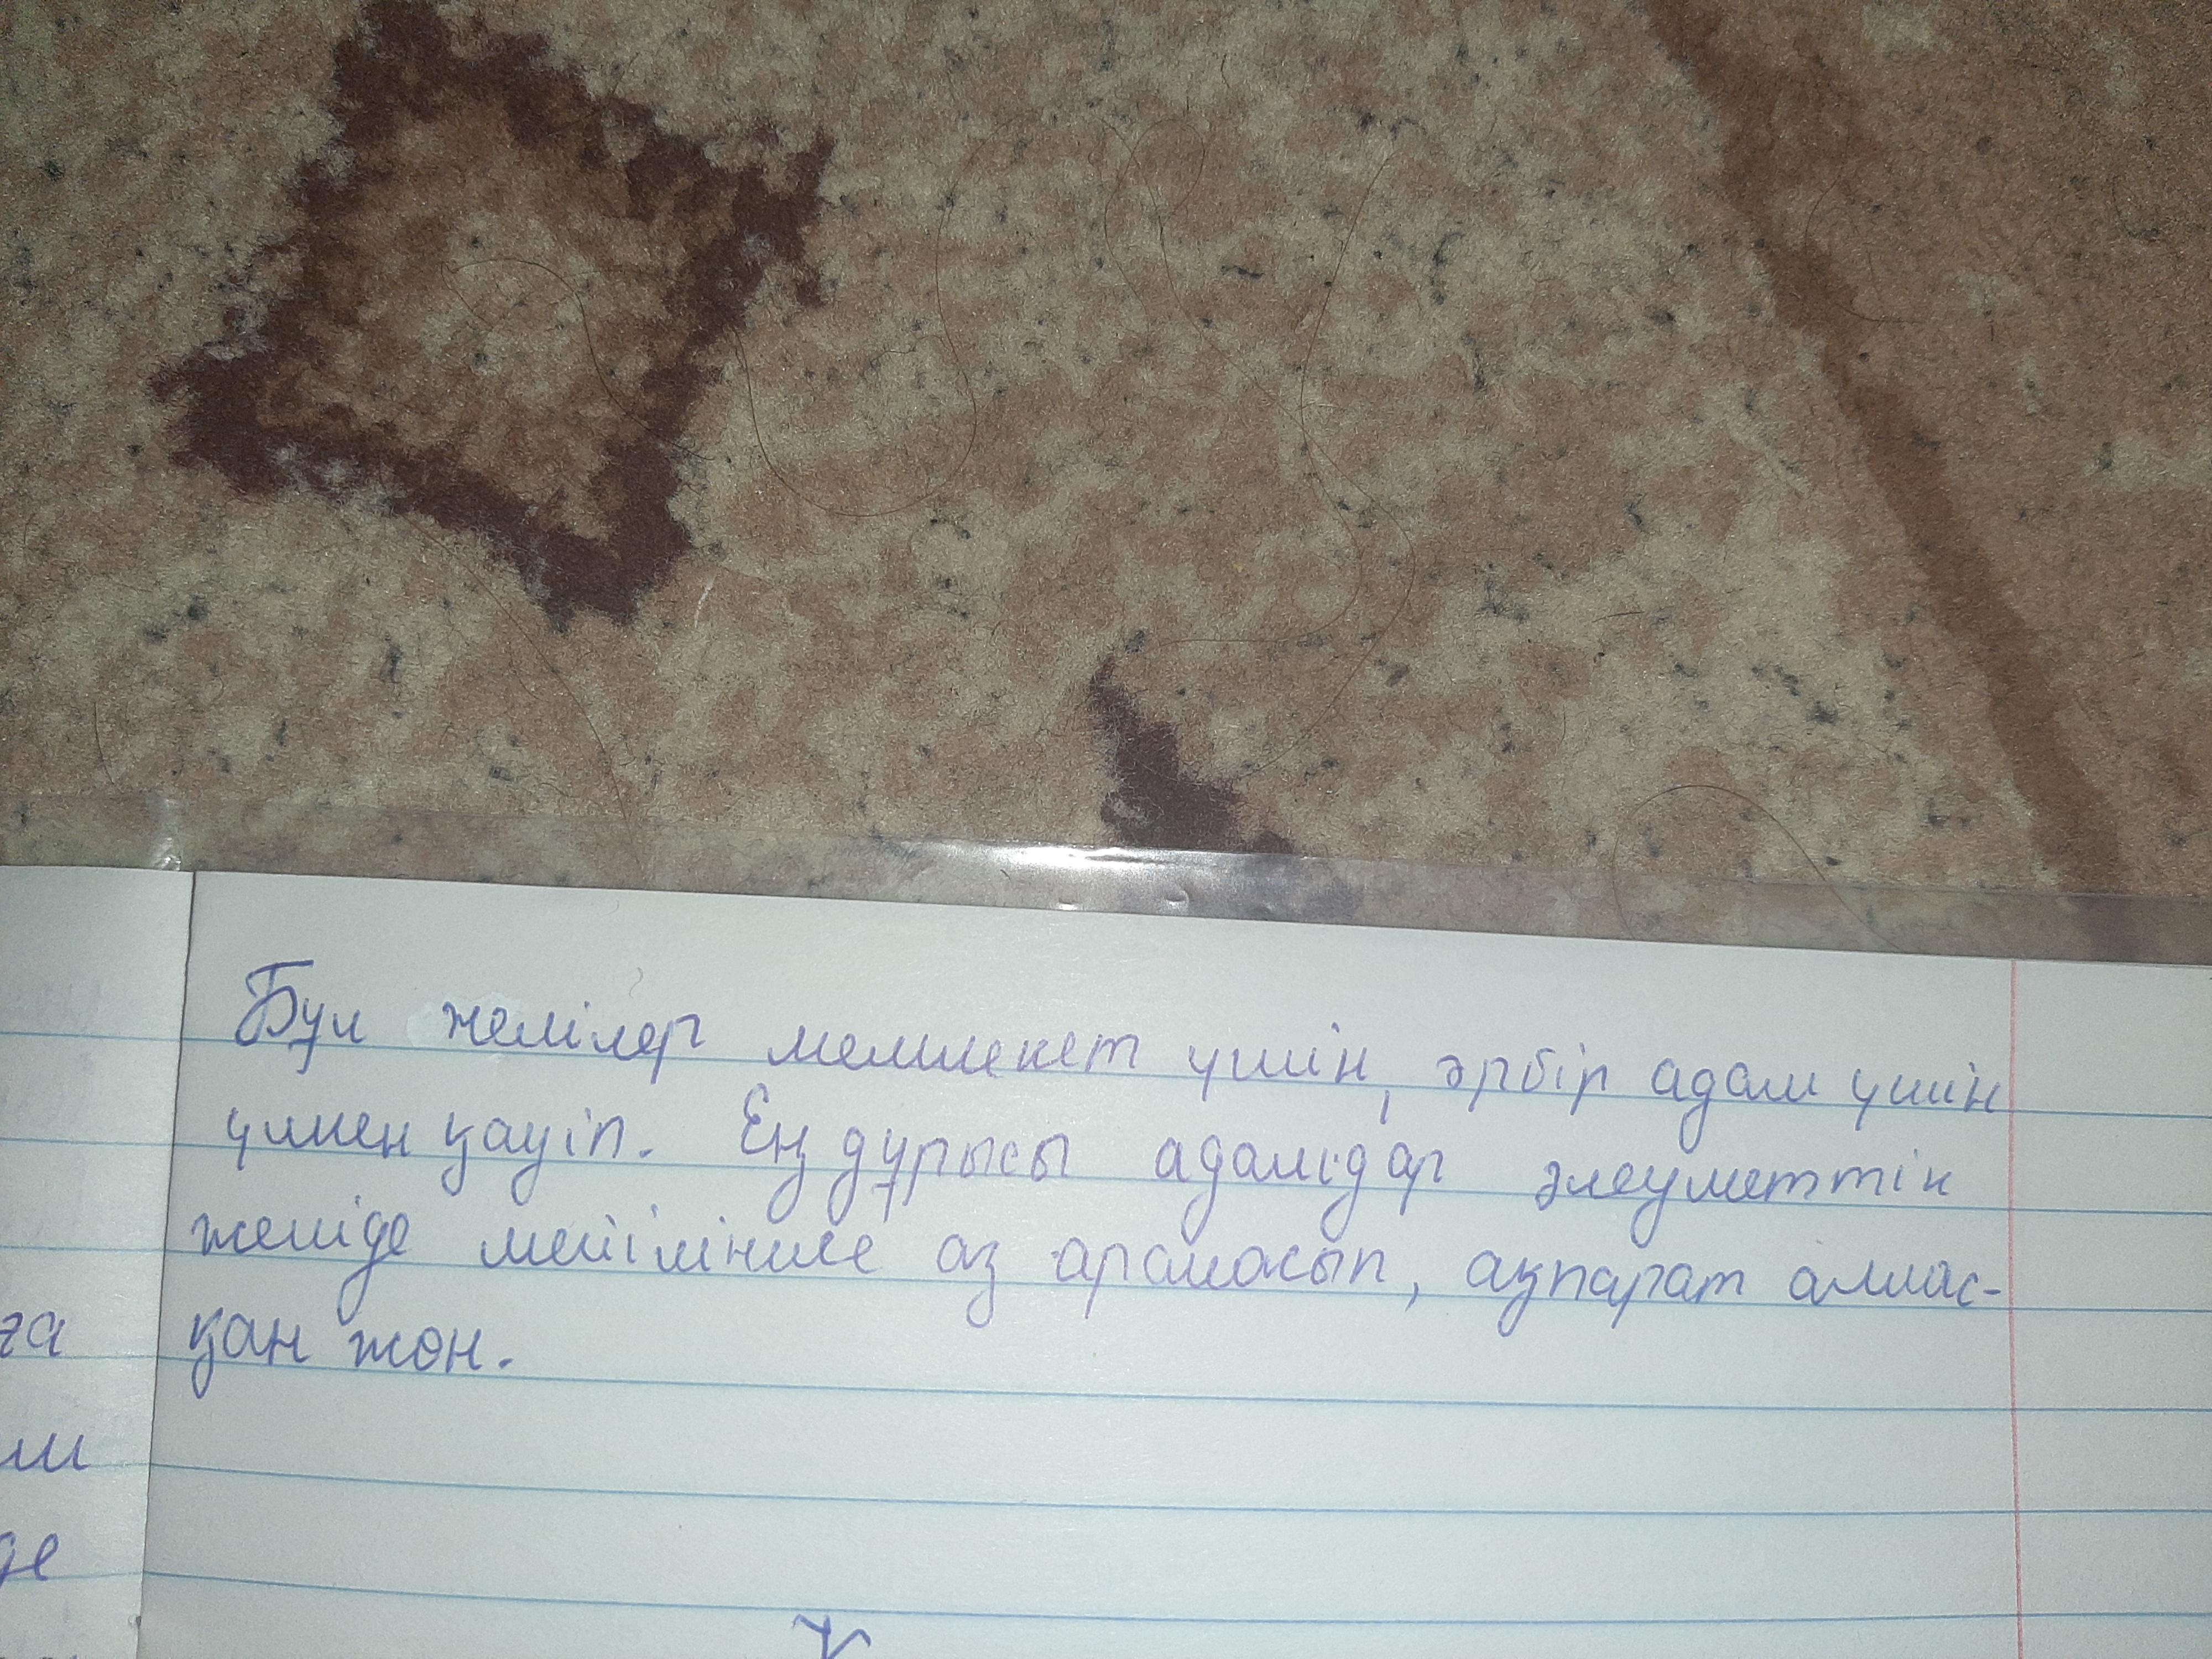 Бұл желілер мемлекет үшін, әрбір адам үшін
үлкен қауіп. Ең дұрысы адамдар әлеуметтік
желіде мейілінше аз араласып, ақпарат алмас-
қан жөн.
ға
де